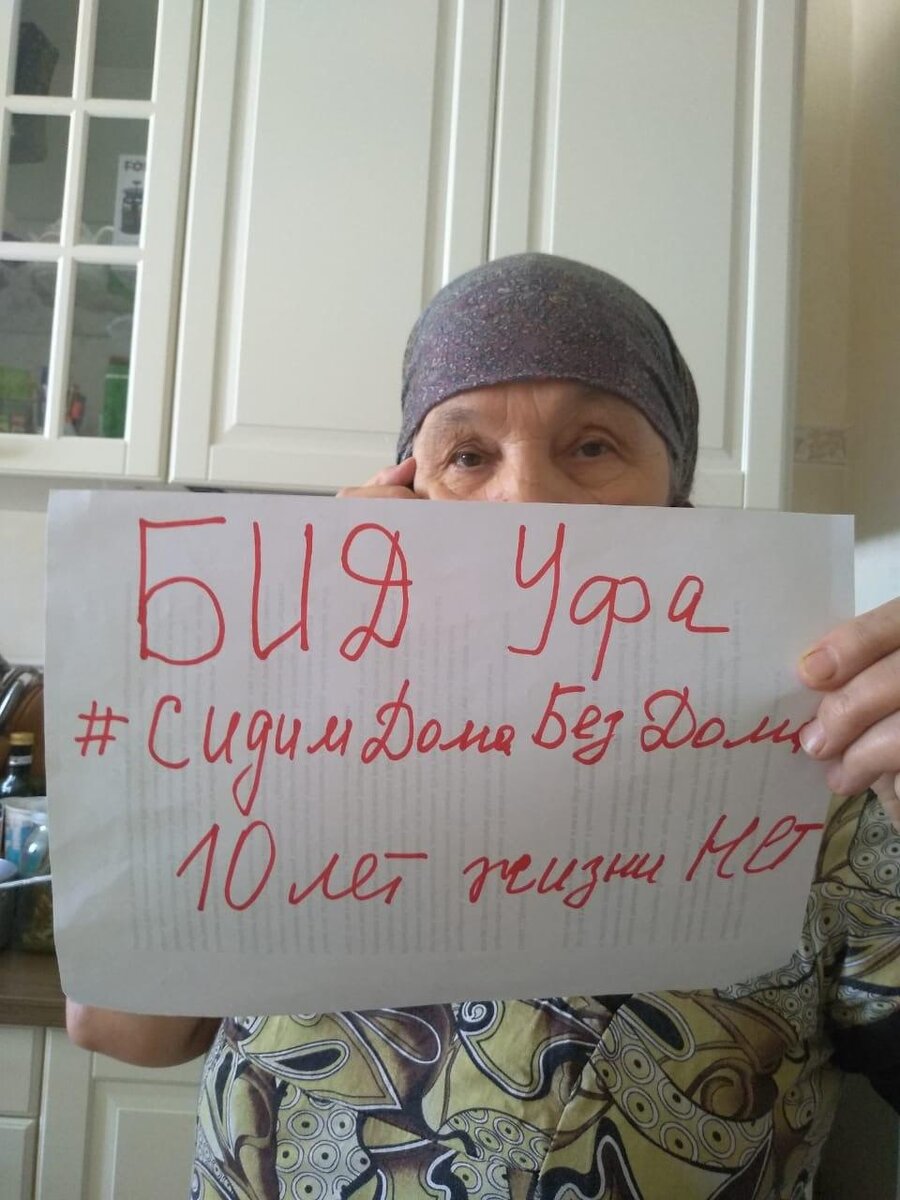 БИД Уфа
#СидимДомаБезДома
10 лет жизни нет